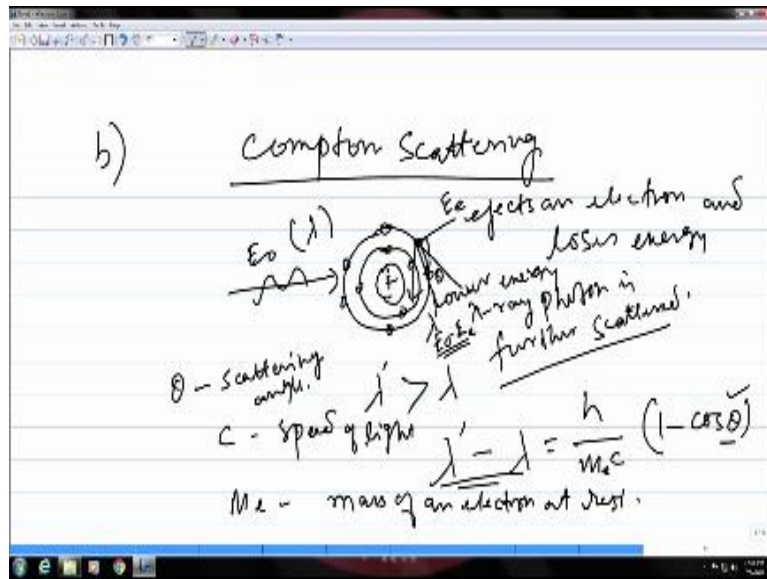 b) Compton Scattering
E₀ (λ)
+
Ee ejects an electron and
loses energy
lower energy
E₀-Ee x-ray photon is
further scattered.
θ - scattering
angle.
λ' > λ
c - speed of light
λ' - λ = h / mₑc (1 - cosθ)
Me - mass of an electron at rest.